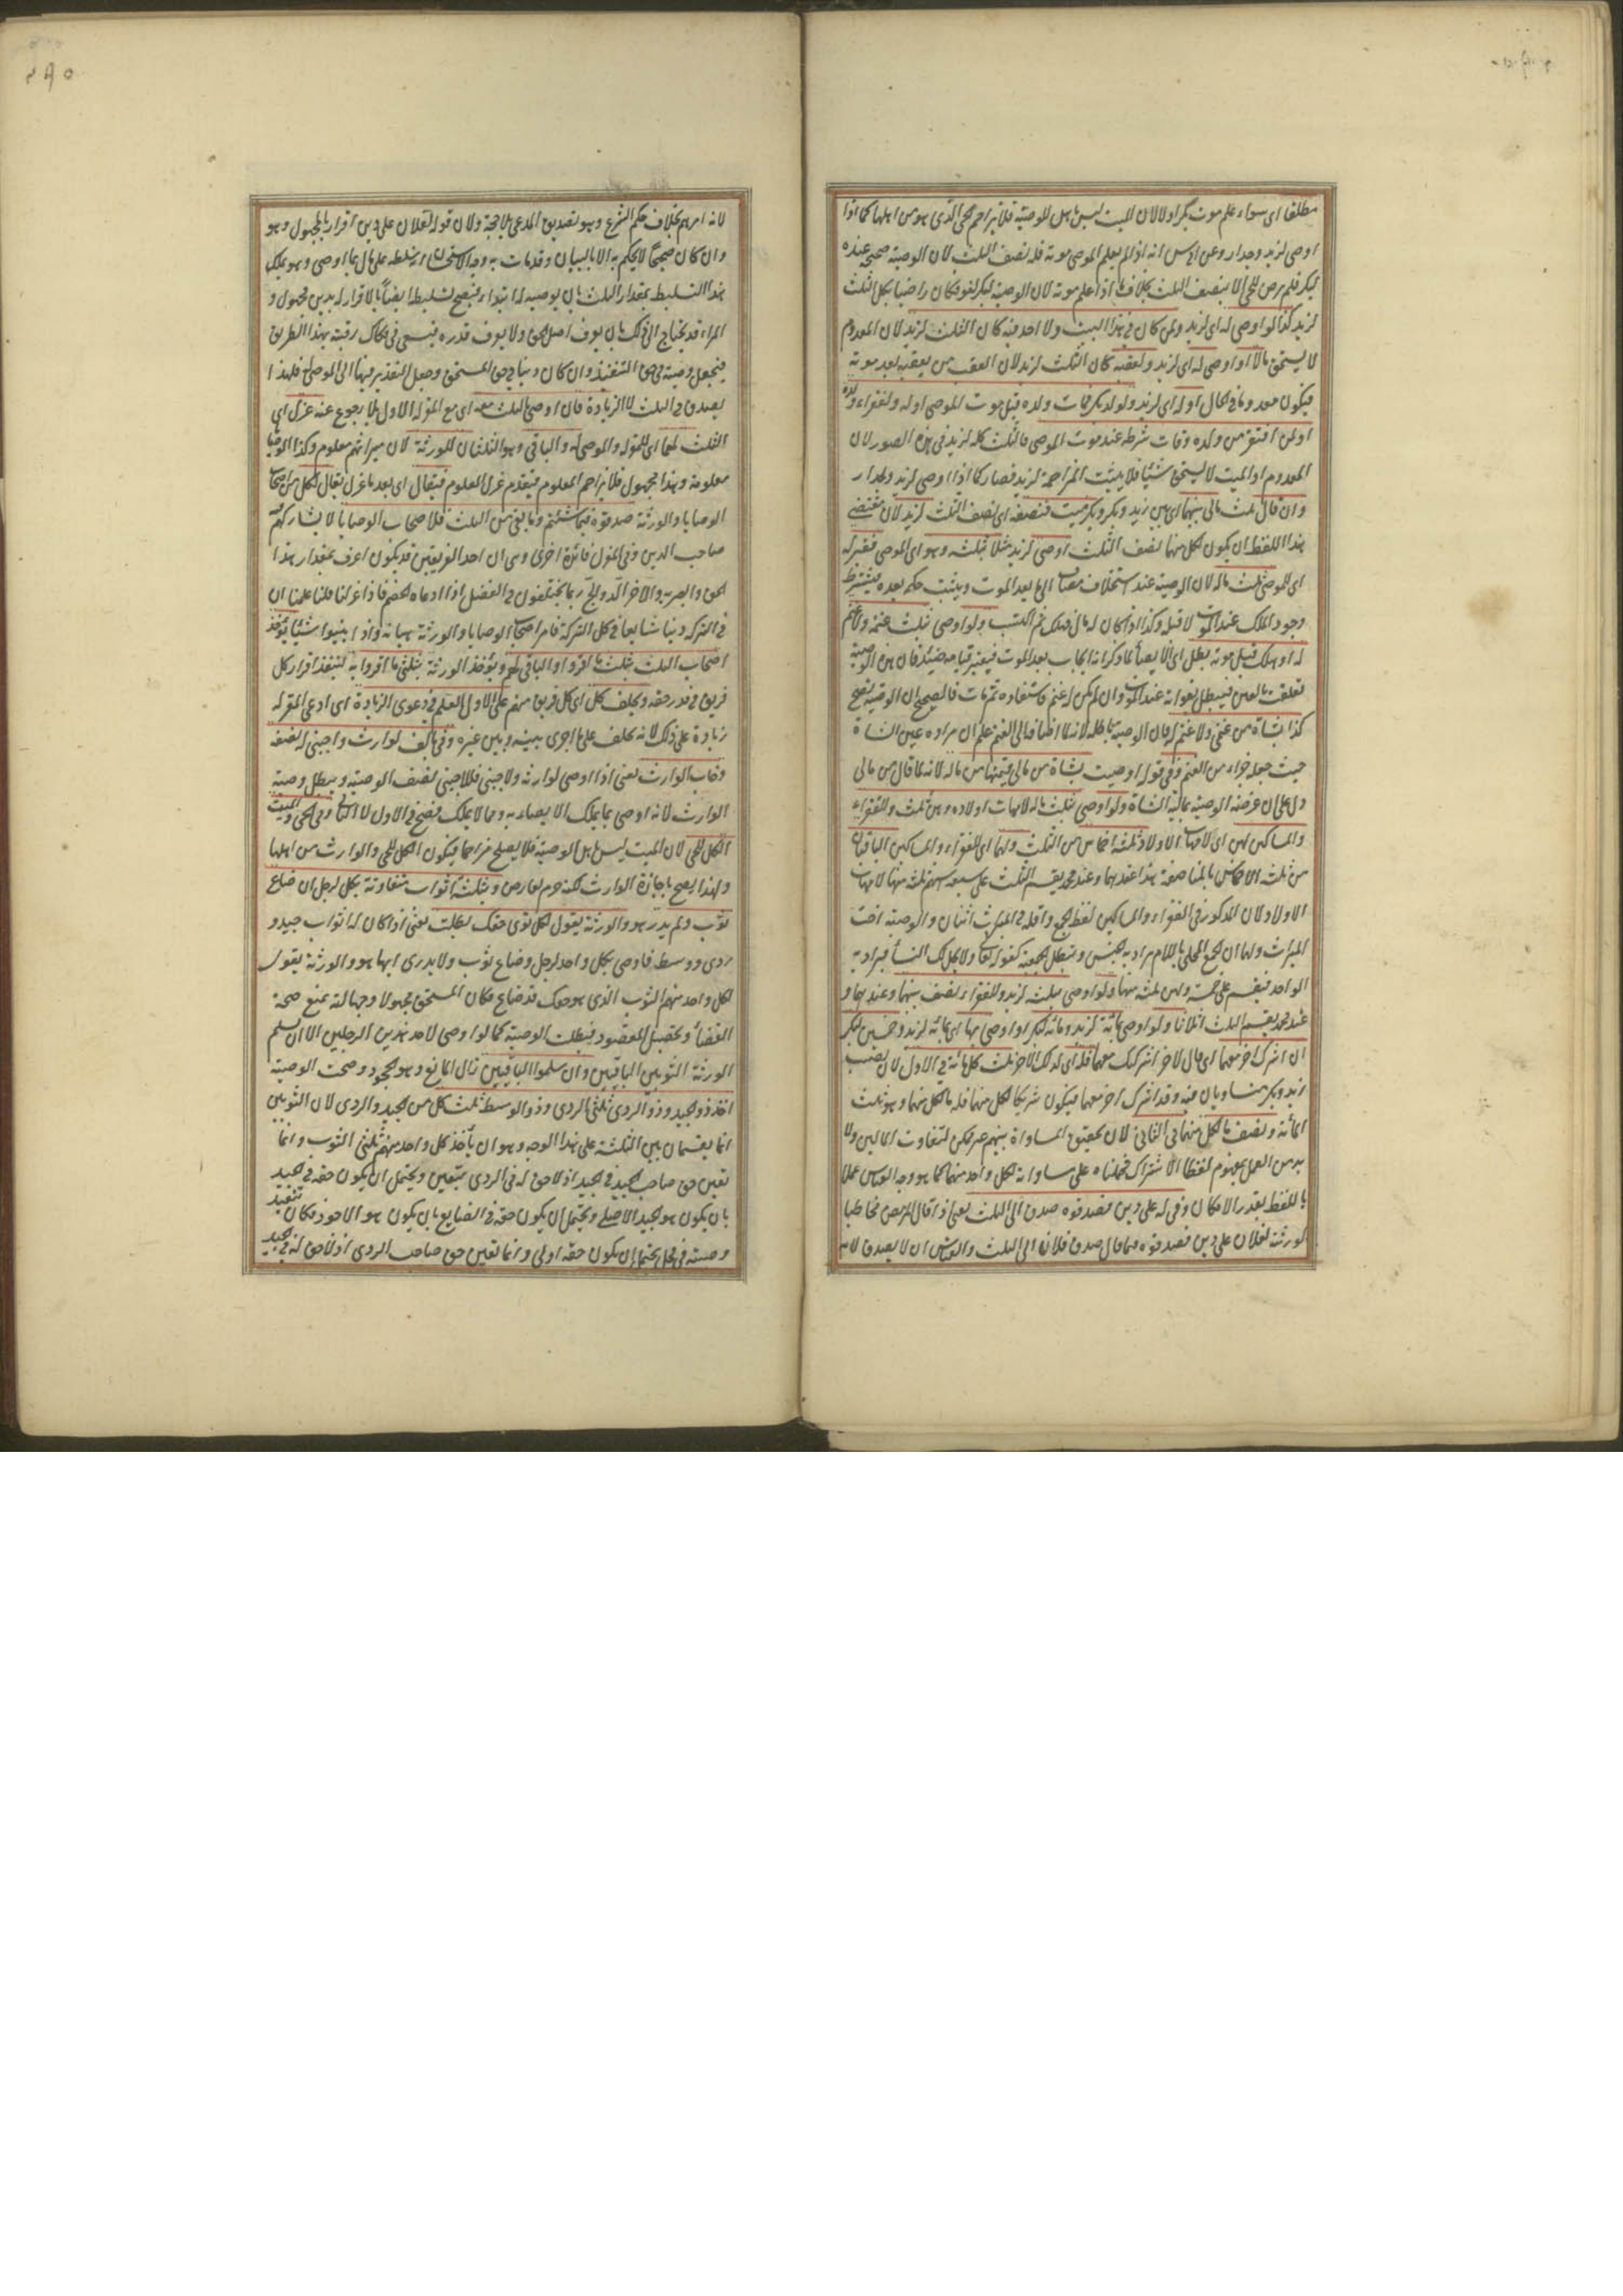 مطلقا اى سواء علم موت بكر اولا لان الميت ليس باهل للوصية فلا يزاحم الحى الذى هو من اهلها كما اذا
اوصى لزيد وجدار وعن ابى يوسف انه اذا لم يعلم الموصى موته فله نصف الثلث لان الوصية صحيحة عنده
لبكر فلم يرض للحى الا بنصف الثلث بخلاف ما اذا علم موته لان الوصية لبكر لغو فكان راضيا بكل الثلث
لزيد كذا لو اوصى له اى لزيد ولمن كان فى هذا البيت ولا احد فيه كان الثلث لزيد لان المعدوم
لا يستحق مالا او اوصى له اى لزيد ولعقبه كان الثلث لزيد لان العقب من يعقبه بعد موته
فيكون معدوما فى الحال او له اى لزيد ولولد بكر فمات ولده قبل موت الموصى او له ولفقراء ولده
او لمن افتقر من ولده وفات شرطه عند موت الموصى فالثلث كله لزيد فى هذه الصور لان
المعدوم او الميت لا يستحق شيئا فلا يثبت المزاحمة لزيد فصار كما اذا اوصى لزيد ولجدار
وان قال ثلث مالى بينهما اى بين زيد وبكر وبكر ميت فنصفه اى نصف الثلث لزيد لان مقتضى
هذا اللفظ ان يكون لكل منهما نصف الثلث اوصى لزيد مثلا بثلثه وهو اى الموصى فقير له
اى للموصى ثلث ماله لان الوصية عند استخلاف مضاف الى ما بعد الموت ويثبت حكمه بعده فيشترط
وجود الملك عند الموت لا قبله وكذا اذا كان له مال فهلك ثم اكتسب ولو اوصى بثلث غنمه ولا غنم
له او هلك قبل موته بطل اى الايصاء لما ذكرنا انه ايجاب بعد الموت فيعتبر قيامه حينئذ فان هذه الوصية
تعلقت بالعين فيبطل بفواته عند الموت وان لم يكن له غنم فاستفاده ثم مات فالصحيح ان الوصية تصح
كذا بشاة من غنمى ولا غنم له فان الوصية باطلة لانه لما اضافه الى الغنم علم ان مراده عين الشاة
حيث جعله جزاء من الغنم وفى قوله اوصيت بشاة من مالى قيمتها من ماله لانه لما قال من مالى
دل على ان غرضه الوصية بمالية الشاة ولو اوصى بثلث ماله لامهات اولاده وهن ثلث وللفقراء
والمساكين لهن اى لامهات الاولاد ثلثة اخماس من الثلث ولهما اى للفقراء والمساكين الباقيان
من ثلثه الاخماس بالمناصفة هذا عندهما وعند محمد يقسم الثلث على سبعة اسهم ثلثة منها لامهات
الاولاد لان المذكور فى الفقراء والمساكين لفظ الجمع واقله فى الميراث اثنان والوصية اخت
الميراث ولهما ان الجمع المحلى باللام يراد به الجنس وتبطل الجمعية كقوله تعالى ولا يحل لك النسأ فيراد به
الواحد فيقسم على خمسة ولهن ثلثة منها ولو اوصى بثلثه لزيد وللفقراء نصف بينهما وعندهما و
عند محمد يقسم الثلث اثلاثا ولو اوصى بمائة لزيد ومائة لبكر او اوصى بها اى بمائة لزيد وخمسين لبكر
ان اشرك اخر معهما اى قال لاخر اشركتك معهما فله اى لذلك الاخر ثلث كل مائة فى الاول لان نصيب
زيد وبكر متساويان فيه وقد اشرك اخر معهما فيكون شريكا لكل منهما فله ما لكل منهما وهو ثلث
المائة ونصف ما لكل منهما فى الثانى لان تحقيق المساواة بينهم غير ممكن لتفاوت المالين ولا
بد من العمل بمفهوم لفظ الاشتراك فحملناه على مساواته لكل واحد منهما كما هو وجه القياس عملا
باللفظ بقدر الامكان وفى له على دين فصدقوه صدق الى الثلث يعنى اذا قال المريض مخاطبا
لورثته لفلان على دين فصدقوه فيما قال صدق فلان الى الثلث والقياس ان لا يصدق لانه
٢٩٥
لانه امرهم بخلاف حكم الشرع وهو تصديق المدعى بلا حجة ولان قوله لفلان على دين اقرار بالمجهول وهو
وان كان صحيحا لا يحكم به الا بالبيان وقد مات به وجه الاستحسان انه سلطه على مال بما اوصى وهو يملك
هذا التسليط بمقدار الثلث بان يوصيه له ابتداء فيصح تسليط ايضا بالاقرار له بدين مجهول و
المراء قد يحتاج الى ذلك بان يعرف اصل الحق ولا يعرف قدره فيسعى فى فكاك رقبته بهذا الطريق
فيجعل وصية فى حق التنفيذ وان كان دينا فى حق المستحق وجعل التقدير فيها الى الموصى له فلهذا
يصدق فى الثلث لا الزيادة فان اوصى بالثلث معه اى مع المقر له الاول بلا رجوع عنه عزل اى
الثلث لهما اى للمقر له والموصى له والباقى وهو الثلثان للورثة لان ميراثهم معلوم وكذا الوصايا
معلومة وهذا مجهول فلا يزاحم المعلوم فيقدم عزل المعلوم فيقال اى بعد ما عزل يقال لكل من اصحاب
الوصايا والورثة صدقوه فيما شئتم وما بقى من الثلث فلاصحاب الوصايا لا يشاركهم
صاحب الدين وفى العزل فائدة اخرى وهى ان احد الفريقين قد يكون اعرف بمقدار هذا
الحق وابصر به والاخر الد والج ربما يختلفون فى الفضل اذا ادعاه الخصم فاذا عزلنا فلنا علمنا ان
فى التركة دينا شايعا فى كل التركة فامر اصحاب الوصايا والورثة ببيانه واذا بينوا شيئا يؤخذ
اصحاب الثلث بثلث ما اقروا والباقى لهم ويؤخذ الورثة بثلثى ما اقروا به لتنفذ اقرار كل
فريق فى قدر حقه ويحلف كل اى كل فريق منهم على الاول العلم فى دعوى الزيادة اى ادعى المقر له
زيادة على ذلك لانه يحلف على ما جرى بينه وبين غيره وفى بالف لوارث واجنبى له نصفه
وخاب الوارث يعنى اذا اوصى لوارثه ولاجنبى فللاجنبى نصف الوصية وبطل وصية
الوارث لانه اوصى بما يملك الايصاء به وما لا يملك فصح فى الاول لا الثانى وفى الحى والميت
الكل للحى لان الميت ليس باهل الوصية فلا يصلح مزاحما فيكون الكل للحى والوارث من اهلها
ولهذا يصح باجازة الوارث لكنه حرم لعارض وبثلثة اثواب متفاوتة بكل لرجل ان ضاع
ثوب ولم يدر هو والورثة يقول لكل توى حقك بطلت يعنى اذا كان له اثواب جيد و
ردى ووسط فاوصى بكل واحد لرجل وضاع ثوب ولا يدرى ايها هو والورثة يقول
لكل واحد منهم الثوب الذى هو حقك قد ضاع فكان المستحق مجهولا وجهالته تمنع صحة
القضأ وتحصيل المقصود فبطلت الوصية كما لو اوصى لاحد هذين الرجلين الا ان سلم
الورثة الثوبين الباقيين وان سلموا الباقيين زال المانع وهو الجحود وصحت الوصية
اخذ ذو الجيد وذو الردى ثلثى الردى وذو الوسط ثلث كل من الجيد والردى لان الثوبين
انما يقسمان بين الثلثة على هذا الوجه وهو ان يأخذ كل واحد منهم ثلثى الثوب وانما
تعين حق صاحب الجيد فى الجيد اذ لا حق له فى الردى بيقين ويحتمل ان يكون حقه فى الجيد
بان يكون هو الجيد الاصلى ويحتمل ان يكون حقه فى الضايع بان يكون هو الاجود فكان تنفيذ
وصيته فى محل يحتمل ان يكون حقه اولى وانما تعين حق صاحب الردى اذ لا حق له فى الجيد